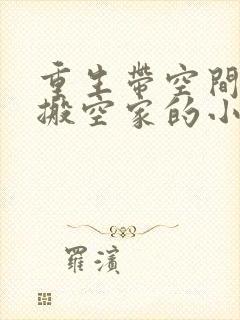 重生帶空間
搬空家的小
羅濱